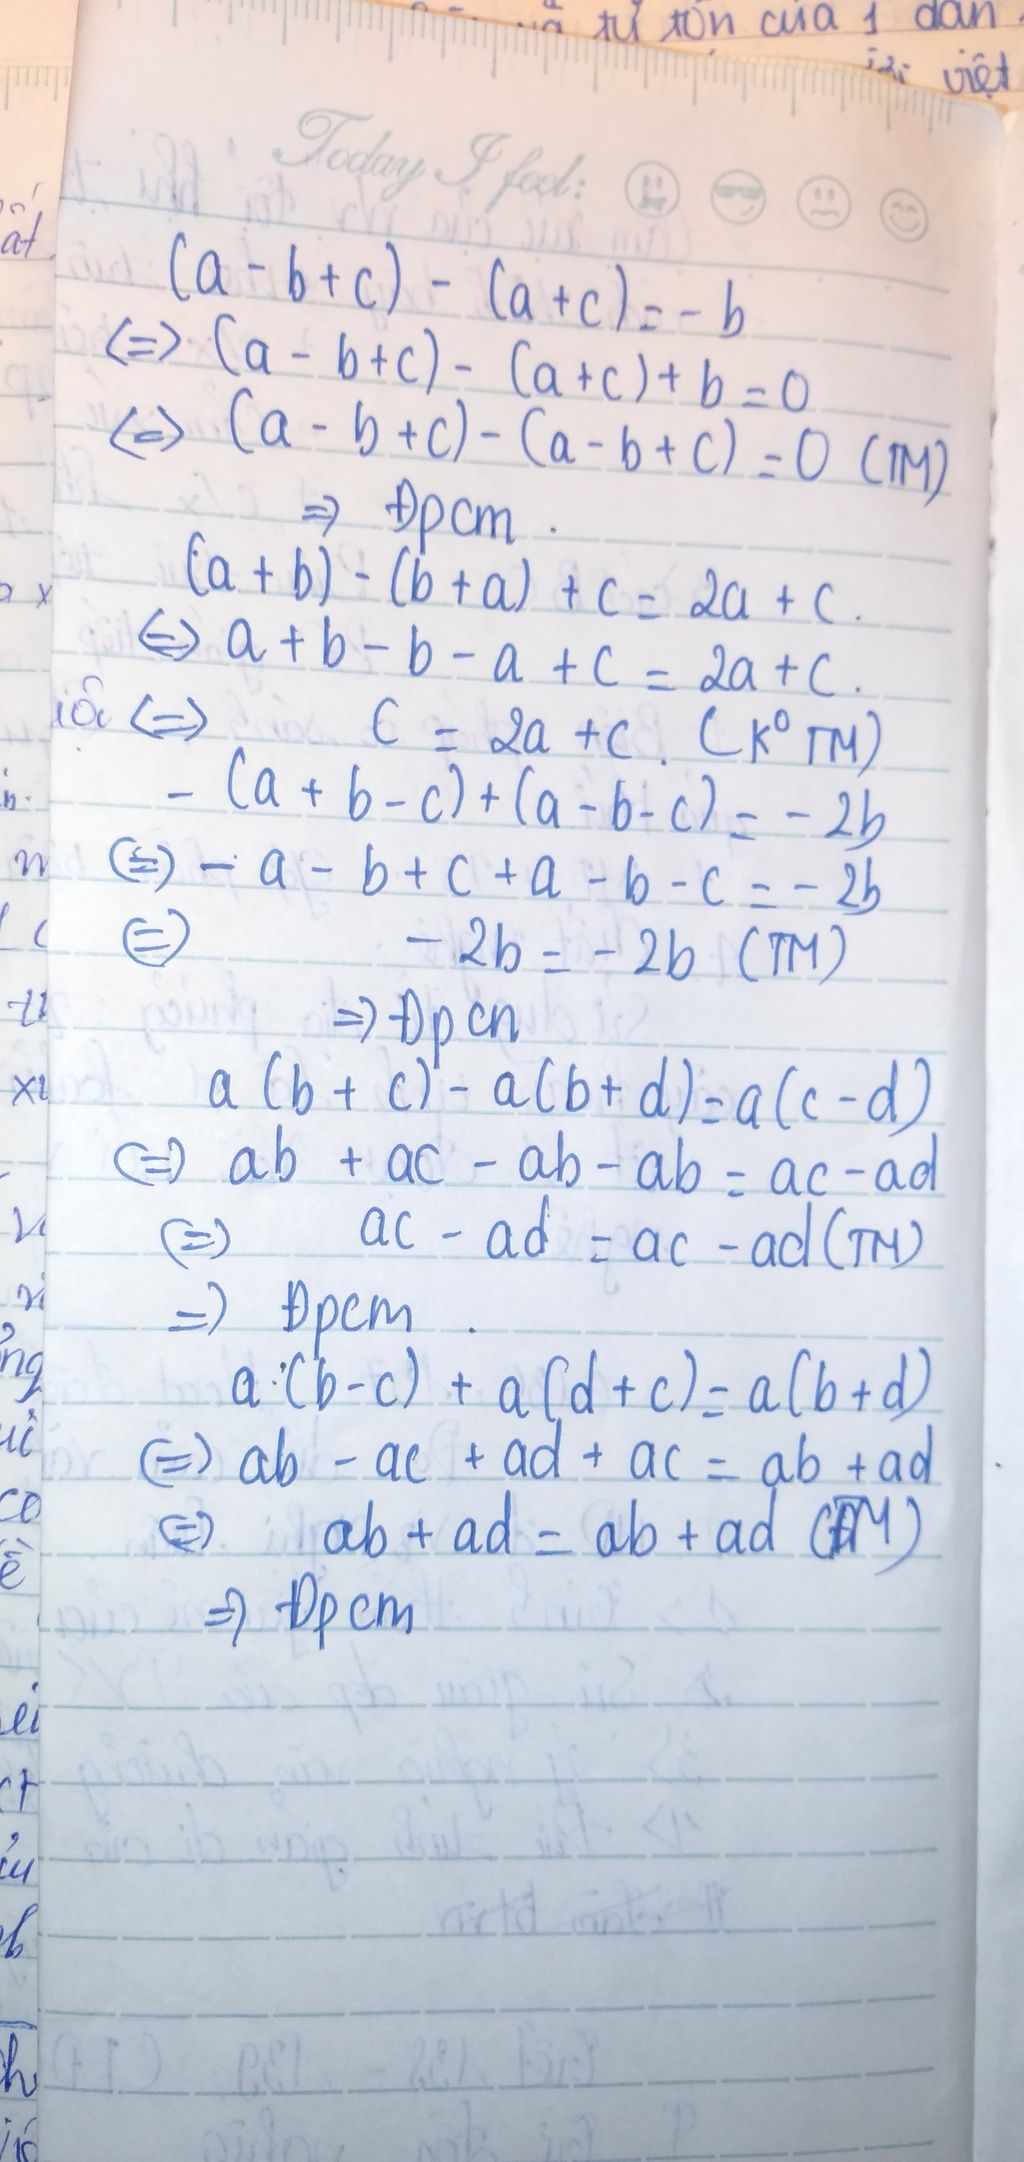 tử tôn của 1 dân
việt
Today I feel:
(a - b + c) - (a + c) = - b
<=> (a - b + c) - (a + c) + b = 0
<=> (a - b + c) - (a - b + c) = 0 (TM)
=> Đpcm.
(a + b) - (b + a) + c = 2a + c.
<=> a + b - b - a + c = 2a + c.
<=> c = 2a + c. (K⁰ TM)
- (a + b - c) + (a - b - c) = - 2b
<=> - a - b + c + a - b - c = - 2b
<=> - 2b = - 2b (TM)
=> Đpcn
a (b + c) - a (b + d) = a (c - d)
<=> ab + ac - ab - ab = ac - ad
<=> ac - ad = ac - ad (TM)
=> Đpcm.
a. (b - c) + a (d + c) = a (b + d)
<=> ab - ac + ad + ac = ab + ad
<=> ab + ad = ab + ad (TM)
=> Đpcm